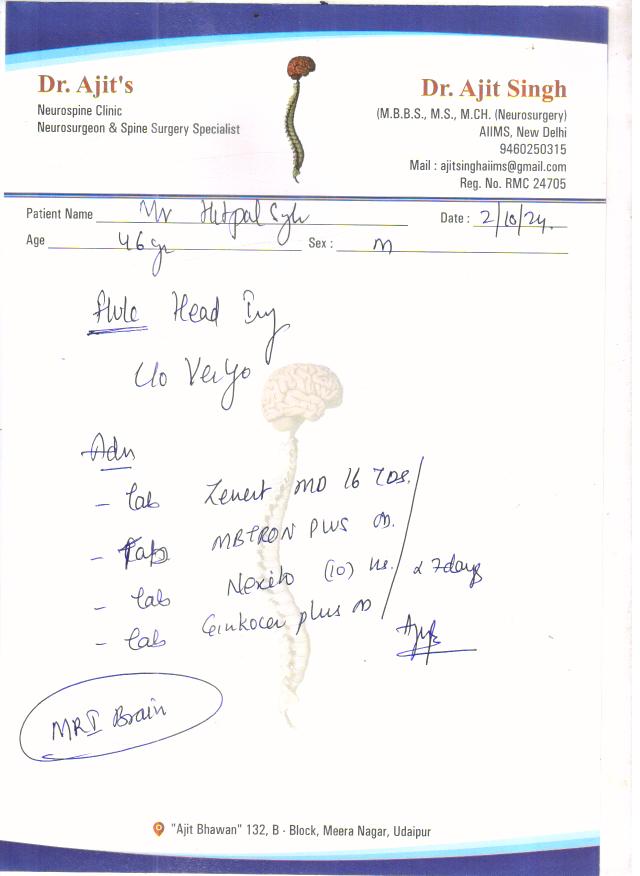 Dr. Ajit's
Neurospine Clinic
Neurosurgeon & Spine Surgery Specialist
Dr. Ajit Singh
(M.B.B.S., M.S., M.CH. (Neurosurgery)
AIIMS, New Delhi
9460250315
Mail : ajitsinghaiims@gmail.com
Reg. No. RMC 24705
Patient Name Mr Hitpal Date : 2/10/24.
Age 46 yr Sex : M
Head Inj
C/o Vertigo
Adv
- Tab MD 16 TDS.
- Tab MBTRON PLUS OD.
- Tab Nexito (10) HS. x 7days
- Tab Ginkocer plus OD
MRI Brain
"Ajit Bhawan" 132, B - Block, Meera Nagar, Udaipur